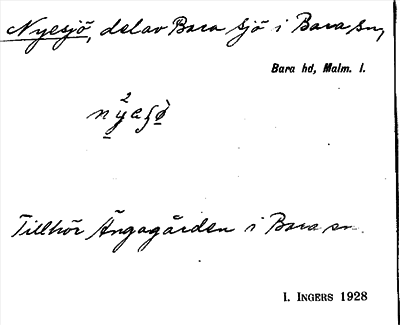 Nyesjö, del av Bara sjö i Bara sn,
Bara hd, Malm. l.
Tillhör Ängagården i Bara sn.
I. INGERS 1928